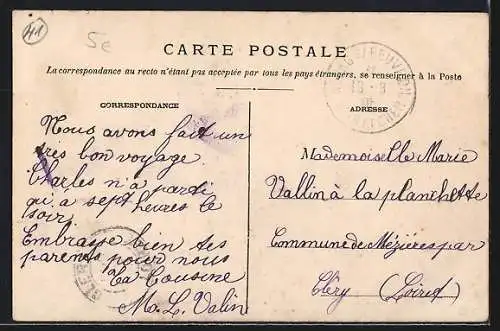 41
5e
CARTE POSTALE
La correspondance au recto n'étant pas acceptée par tous les pays étrangers, se renseigner à la Poste
CORRESPONDANCE
ADRESSE
Nous avons fait un
très bon voyage.
Charles n'a parti
qu'a sept heures le
soir.
Embrasse bien tes
parents pour nous
ta Cousine
M. L. Valin
Mademoiselle Marie
Vallin à la planchette
Commune de Mézières par
Cléry (Loiret)